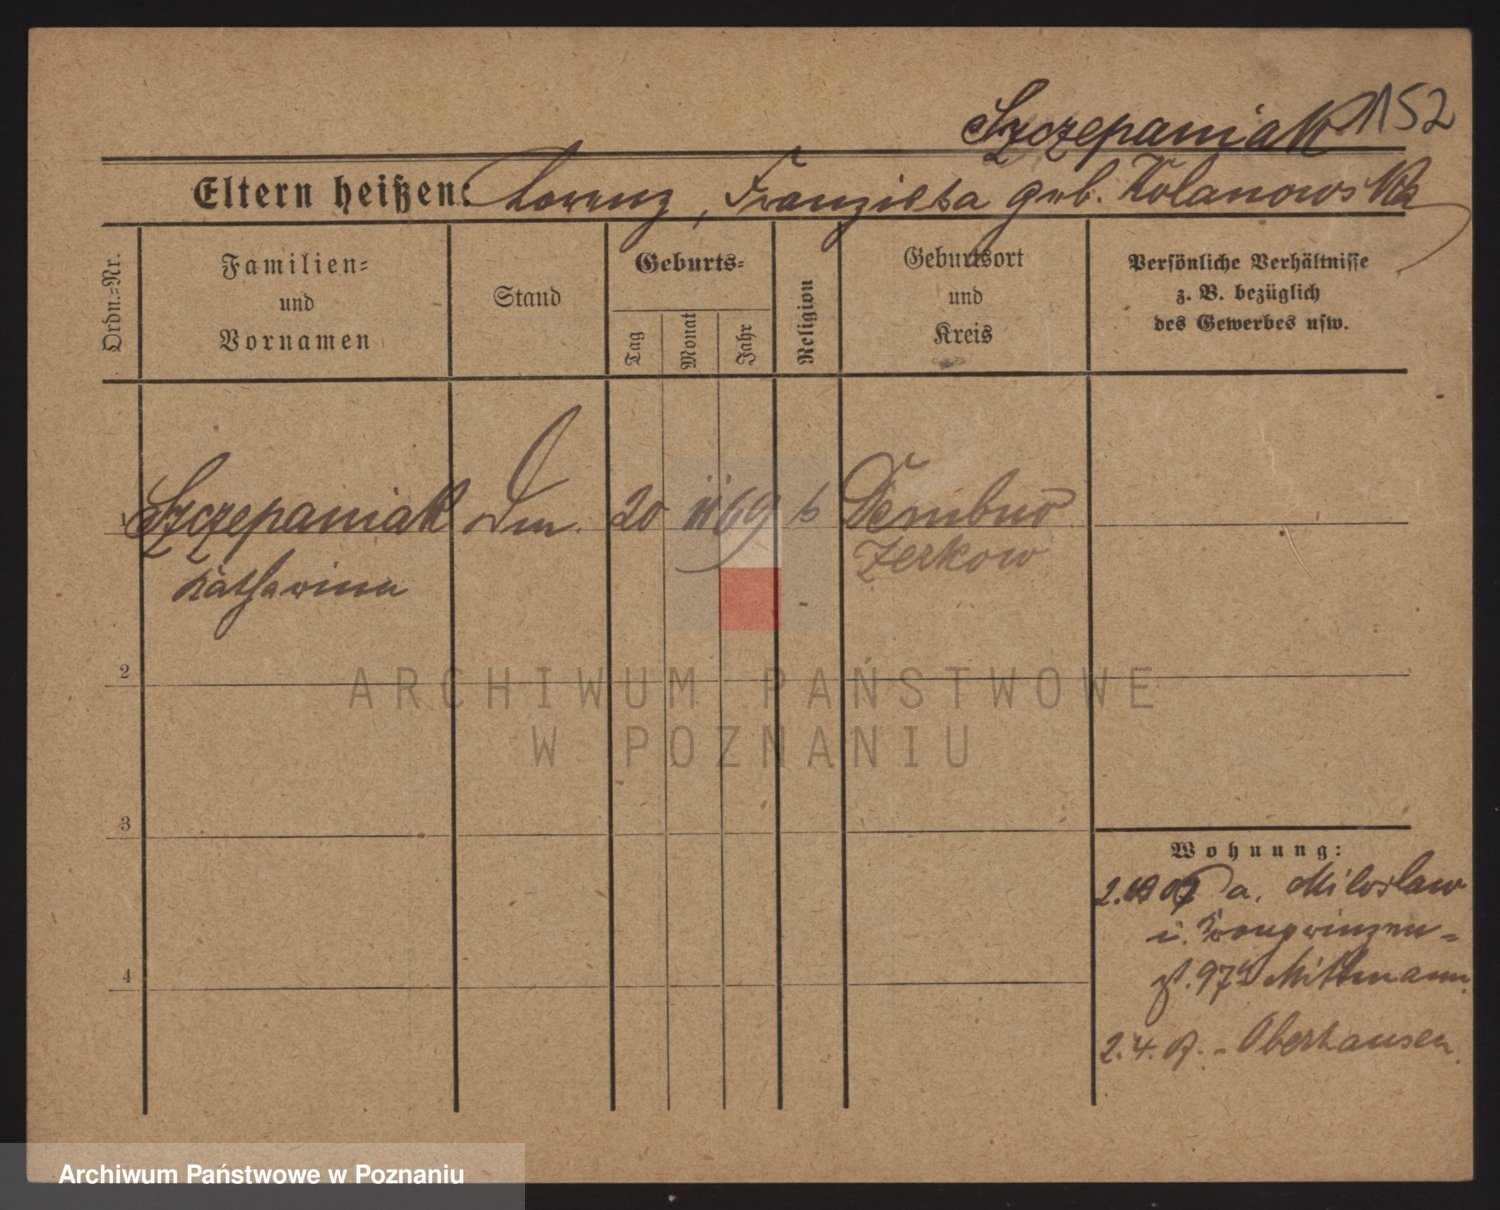 Szczepaniak 152
Eltern heißen: Lorenz, Franziska geb. Kolanowska
Ordn.=Nr.
Familien=
und
Vornamen
Stand
Geburts=
Tag
Monat
Jahr
Religion
Geburtsort
und
Kreis
Persönliche Verhältnisse
z. B. bezüglich
des Gewerbes usw.
1 Szczepaniak 20 69 Dembno
Katharina Zerkow
2
ARCHIWUM PAŃSTWOWE
W POZNANIU
3
4
Wohnung:
a. Miloslaw
i. Kronprinzen-
st. 97 Mittmann
2.4. - Oberhausen
Archiwum Państwowe w Poznaniu